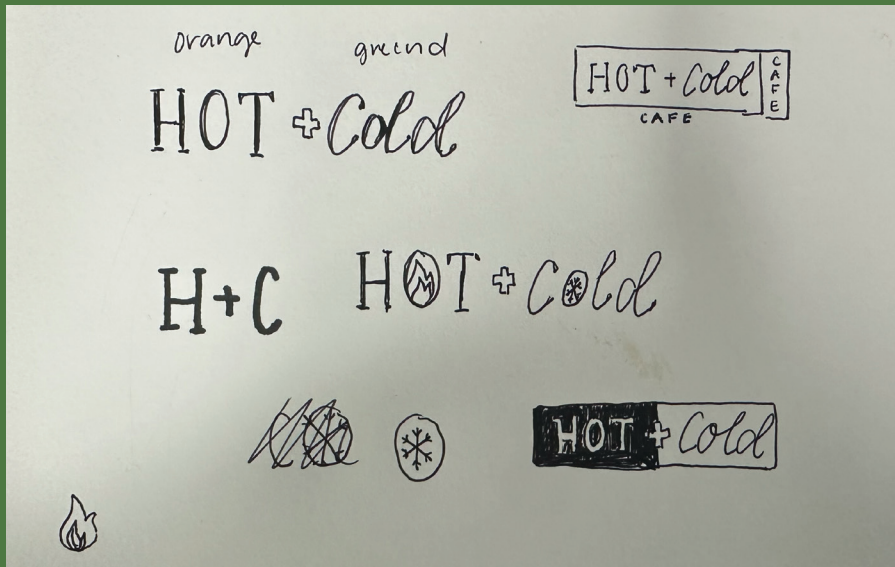 orange greend
HOT + Cold
HOT + Cold
CAFE
CAFE
H+C
HOT + Cold
HOT + Cold